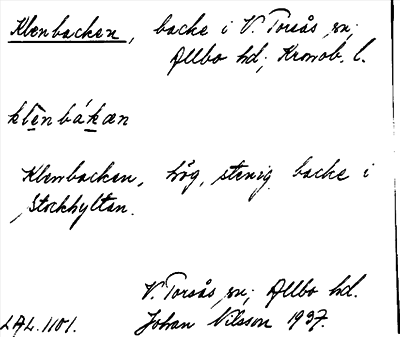 Klenbacken, backe i V. Torsås sn;
Allbo hd; Kronob. l.
klēnbákæn
Klenbacken, hög, stenig backe i
Stockhyltan.
V. Torsås sn; Allbo hd.
LAL. 1101. Johan Nilsson 1937.